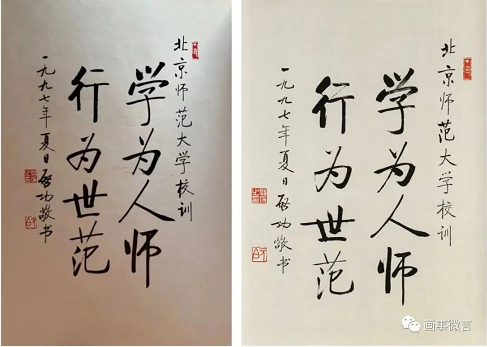 北京师范大学校训
学为人师
行为世范
一九九七年夏日启功敬书
北京师范大学校训
学为人师
行为世范
一九九七年夏日启功敬书
画事微言